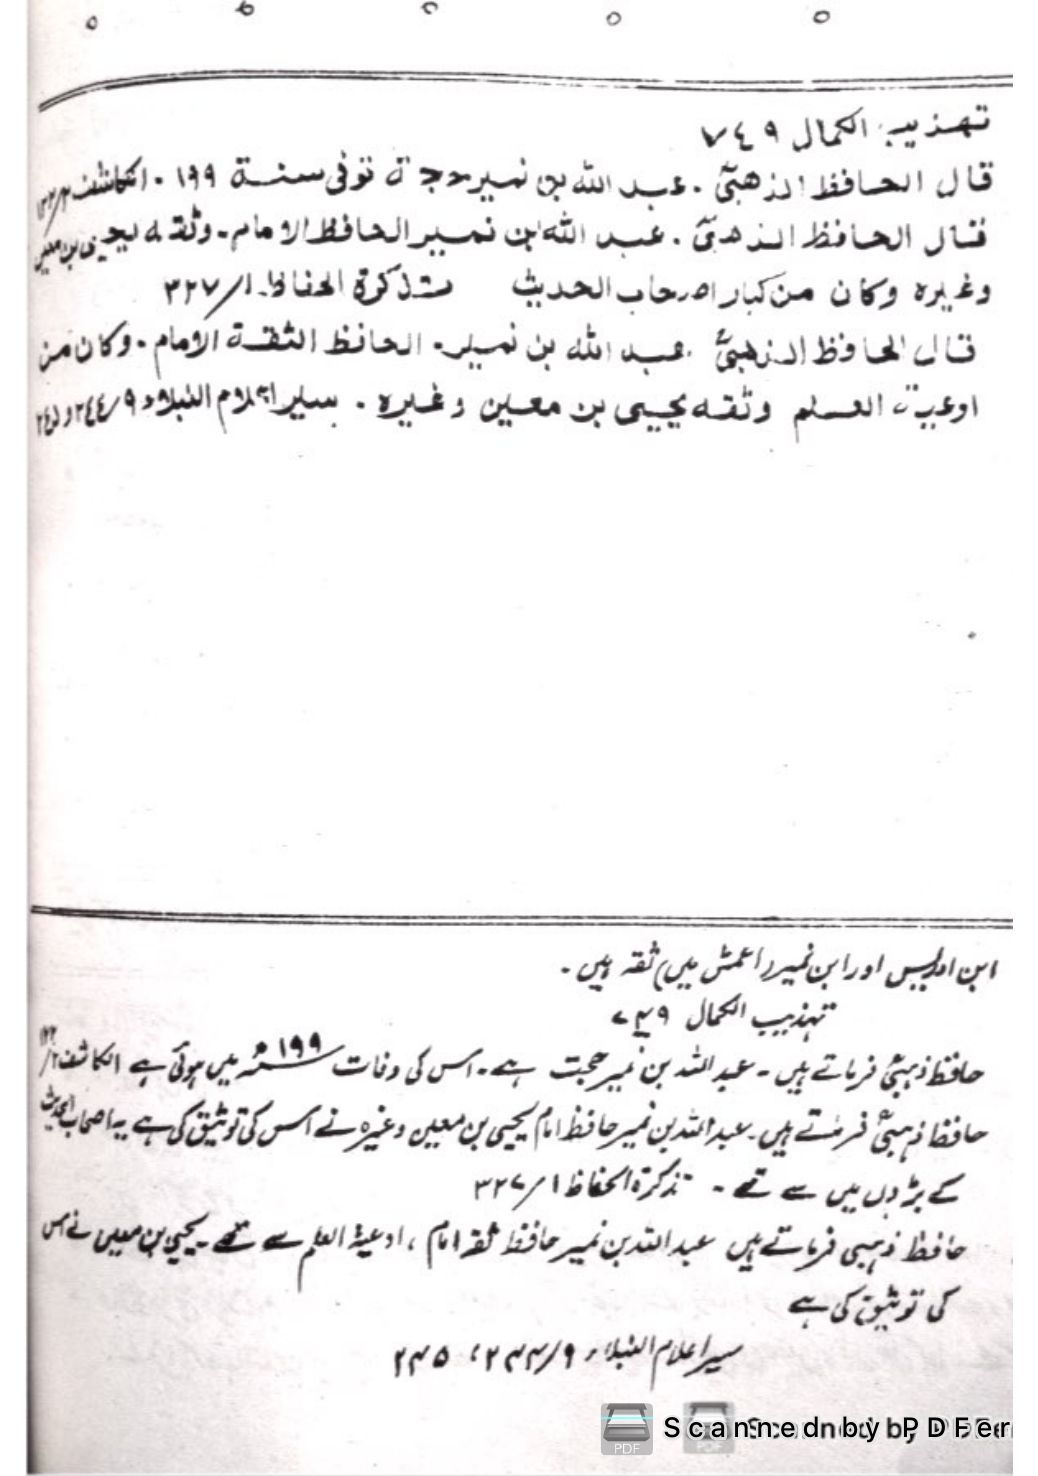 تهذيب الكمال ٧٤٩
قال الحافظ الذهبيؒ . عبد الله بن نمير حجة توفى سنة ١٩٩ . الكاشف ١٢٢/٢
قال الحافظ الذهبيؒ . عبد الله بن نمير الحافظ الامام . وثقه يحيى بن معين
وغيره وكان من كبار اصحاب الحديث تذكرة الحفاظ ٣٢٧/١
قال الحافظ الذهبيؒ عبد الله بن نمير . الحافظ الثقة الامام . وكان من
اوعية العلم وثقه يحيى بن معين وغيره . سير اعلام النبلاء ٢٤٤/٩ و ٢٤٥
ابن ادریس اور ابن نمیر (اعمش میں) ثقہ ہیں ۔
تہذیب الکمال ۷۴۹
حافظ ذہبیؒ فرماتے ہیں ۔ عبد اللہ بن نمیر حجت ہے ۔ اس کی وفات ۱۹۹ھ میں ہوئی ہے الکاشف ۱۲۲/۲
حافظ ذہبیؒ فرماتے ہیں ۔ عبد اللہ بن نمیر حافظ امام یحیی بن معین وغیرہ نے اس کی توثیق کی ہے یہ اصحاب الحدیث
کے بڑوں میں سے تھے ۔ تذکرۃ الحفاظ ۳۲۷/۱
حافظ ذہبی فرماتے ہیں عبد اللہ بن نمیر حافظ ثقہ امام ، اوعیۃ العلم سے تھے ۔ یحیی بن معین نے اس
کی توثیق کی ہے
سیر اعلام النبلاء ۲۴۴/۹ ، ۲۴۵
Scanned by PDFer